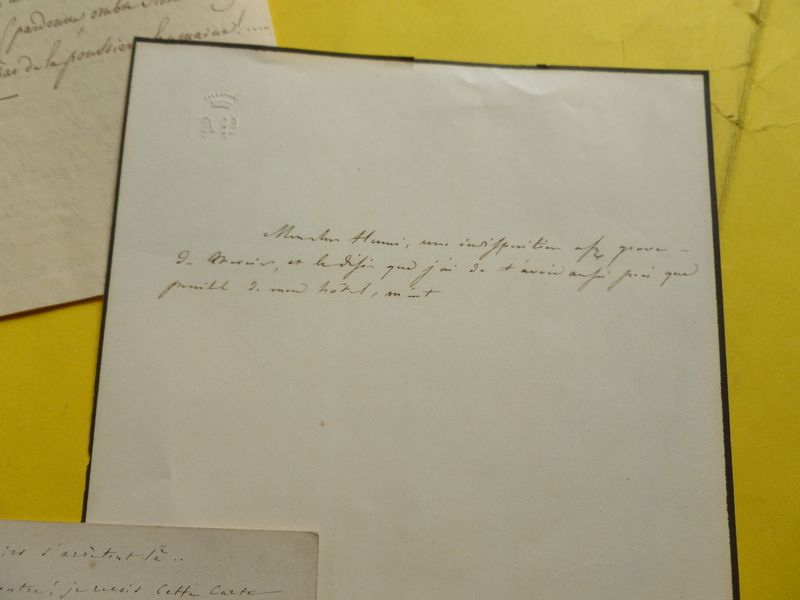 pardonne ombre
pas de la poussière humaine! ....
AP
Mon cher Henri, une indisposition assez grave
de Xavier, et le désir que j'ai de t'avoir aussi près que
possible de mon hôtel, m'ont
s'arrêtent là ..
je reçois cette carte